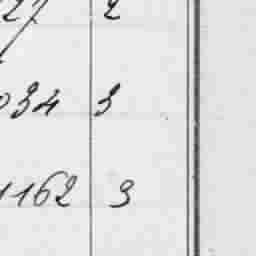 27 2
034 3
1162 3